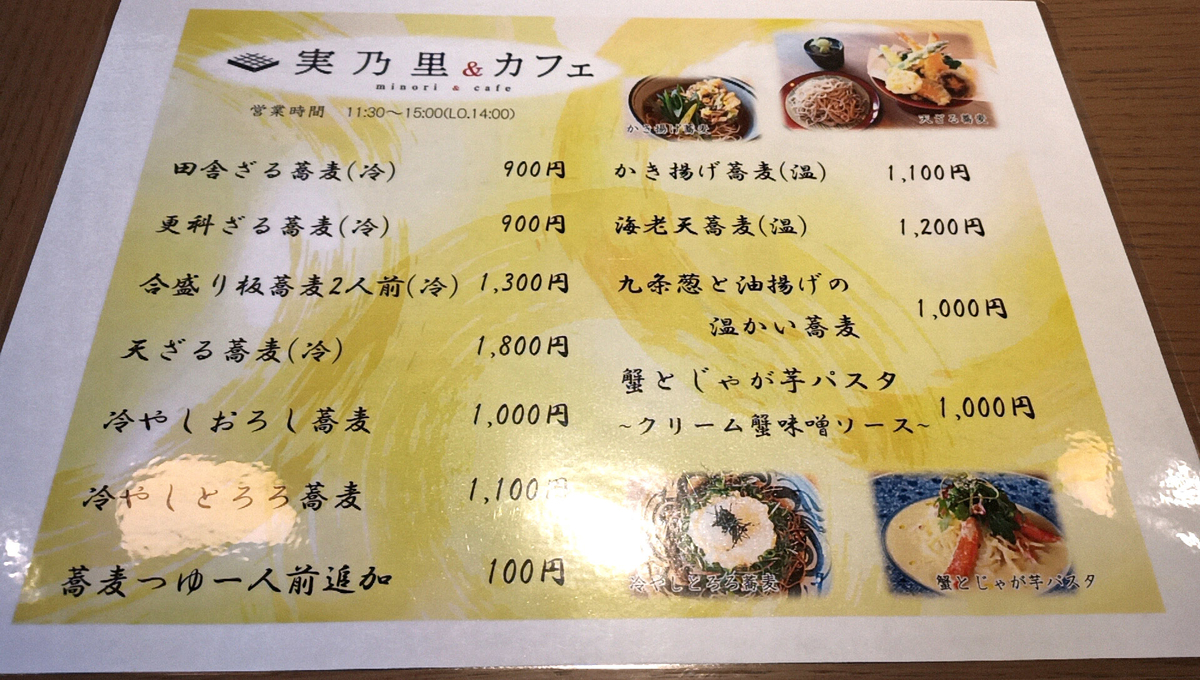 実乃里&カフェ
minori & cafe
営業時間 11:30～15:00(LO.14:00)
田舎ざる蕎麦(冷) 900円
更科ざる蕎麦(冷) 900円
合盛り板蕎麦2人前(冷) 1,300円
天ざる蕎麦(冷) 1,800円
冷やしおろし蕎麦 1,000円
冷やしとろろ蕎麦 1,100円
蕎麦つゆ一人前追加 100円
かき揚げ蕎麦
天ざる蕎麦
かき揚げ蕎麦(温) 1,100円
海老天蕎麦(温) 1,200円
九条葱と油揚げの
温かい蕎麦 1,000円
蟹とじゃが芋パスタ
~クリーム蟹味噌ソース~ 1,000円
冷やしとろろ蕎麦
蟹とじゃが芋パスタ